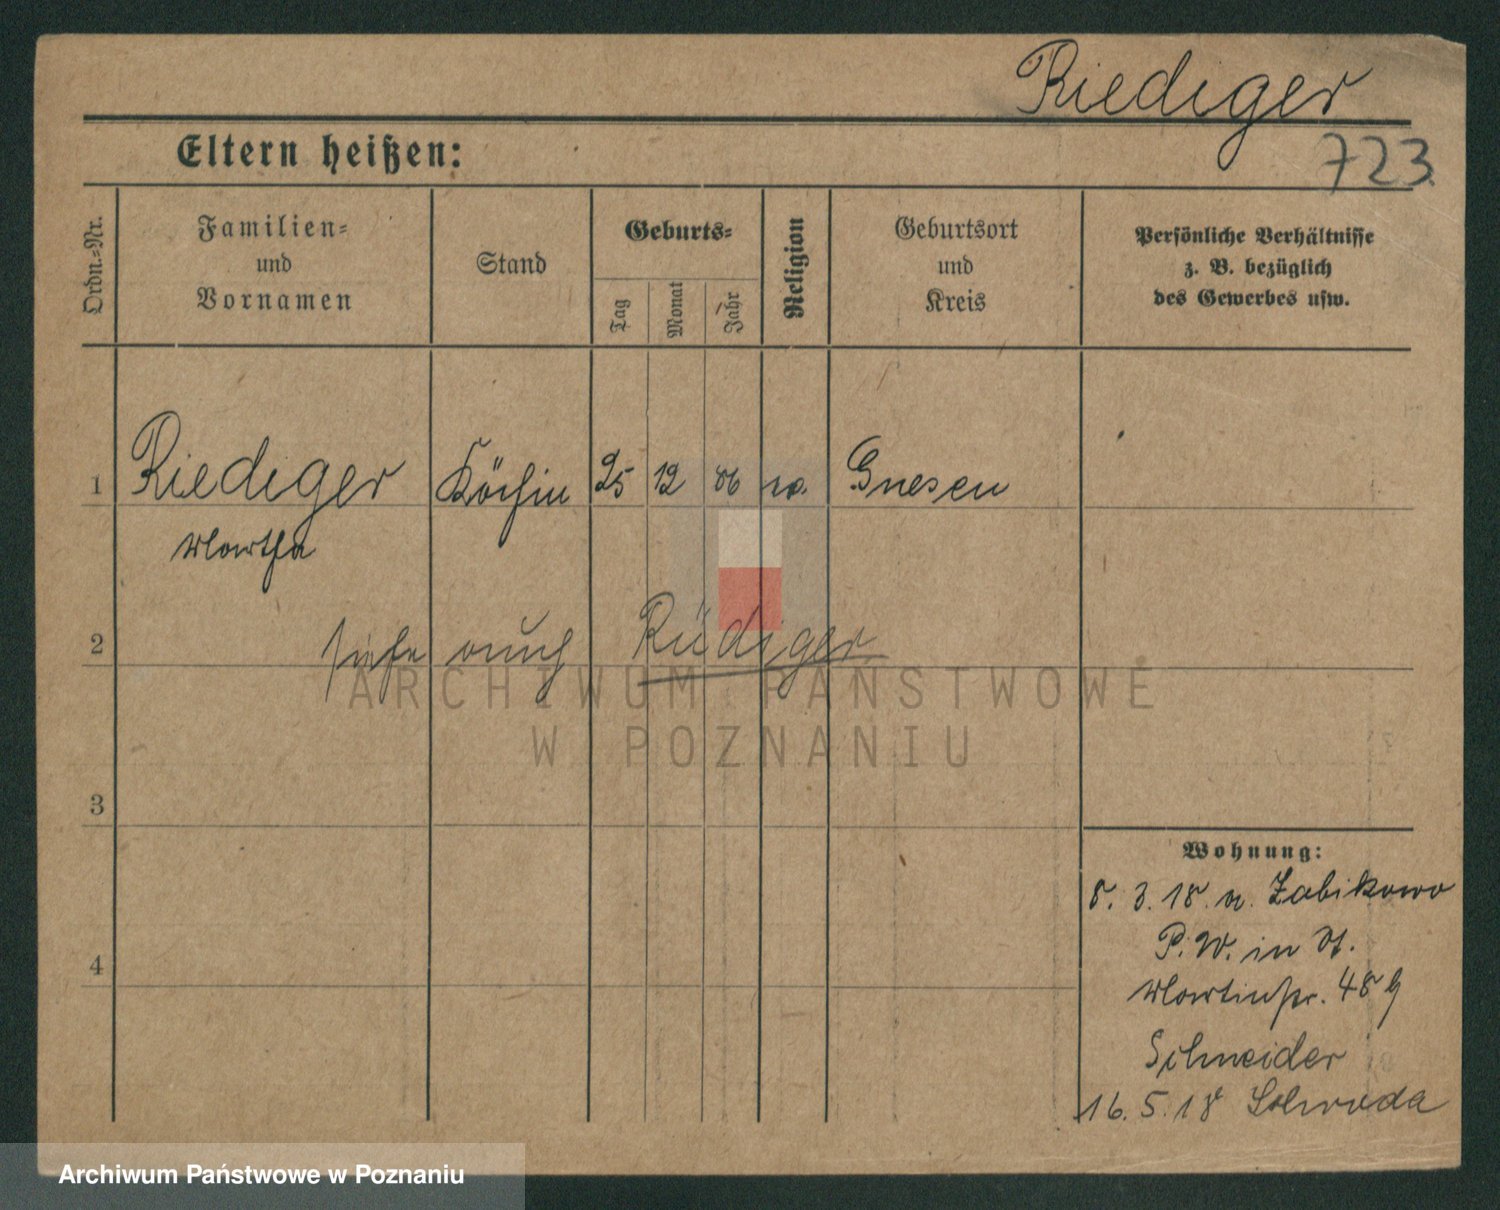 Riediger
723.
Eltern heißen:
Ordn.-Nr.
Familien-
und
Vornamen
Stand
Geburts-
Tag
Monat
Jahr
Religion
Geburtsort
und
Kreis
Persönliche Verhältnisse
z. B. bezüglich
des Gewerbes usw.
1 Riediger Köchin 25 12 86 Gnesen
Martha
2 siehe auch Rüdiger
3
4
Wohnung:
8. 3. 18. a. Zabikowo
P. W. in St.
Martinstr. 48
Schneider
16. 5. 18 Schroda
ARCHIWUM PAŃSTWOWE
W POZNANIU
Archiwum Państwowe w Poznaniu